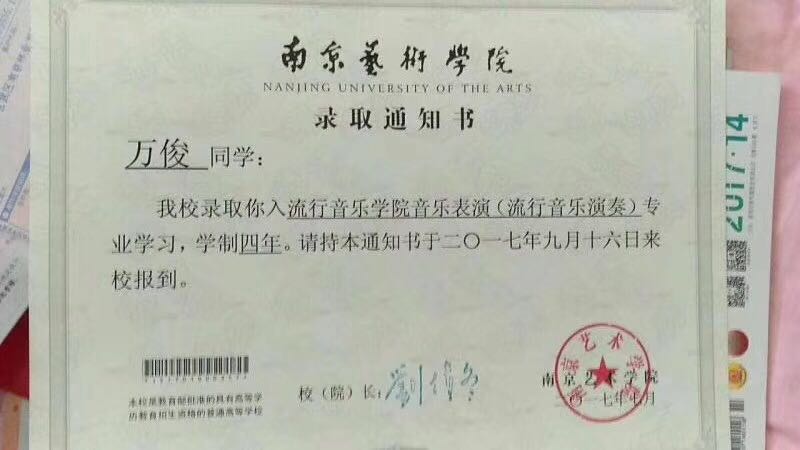 南京藝術學院
NANJING UNIVERSITY OF THE ARTS
录取通知书
万俊 同学：
我校录取你入流行音乐学院音乐表演（流行音乐演奏）专
业学习，学制四年。请持本通知书于二〇一七年九月十六日来
校报到。
本校是教育部批准的具有高等学
历教育招生资格的普通高等学校
校（院）长：
南京艺术学院
二〇一七年七月
南京艺术学院
2017·14